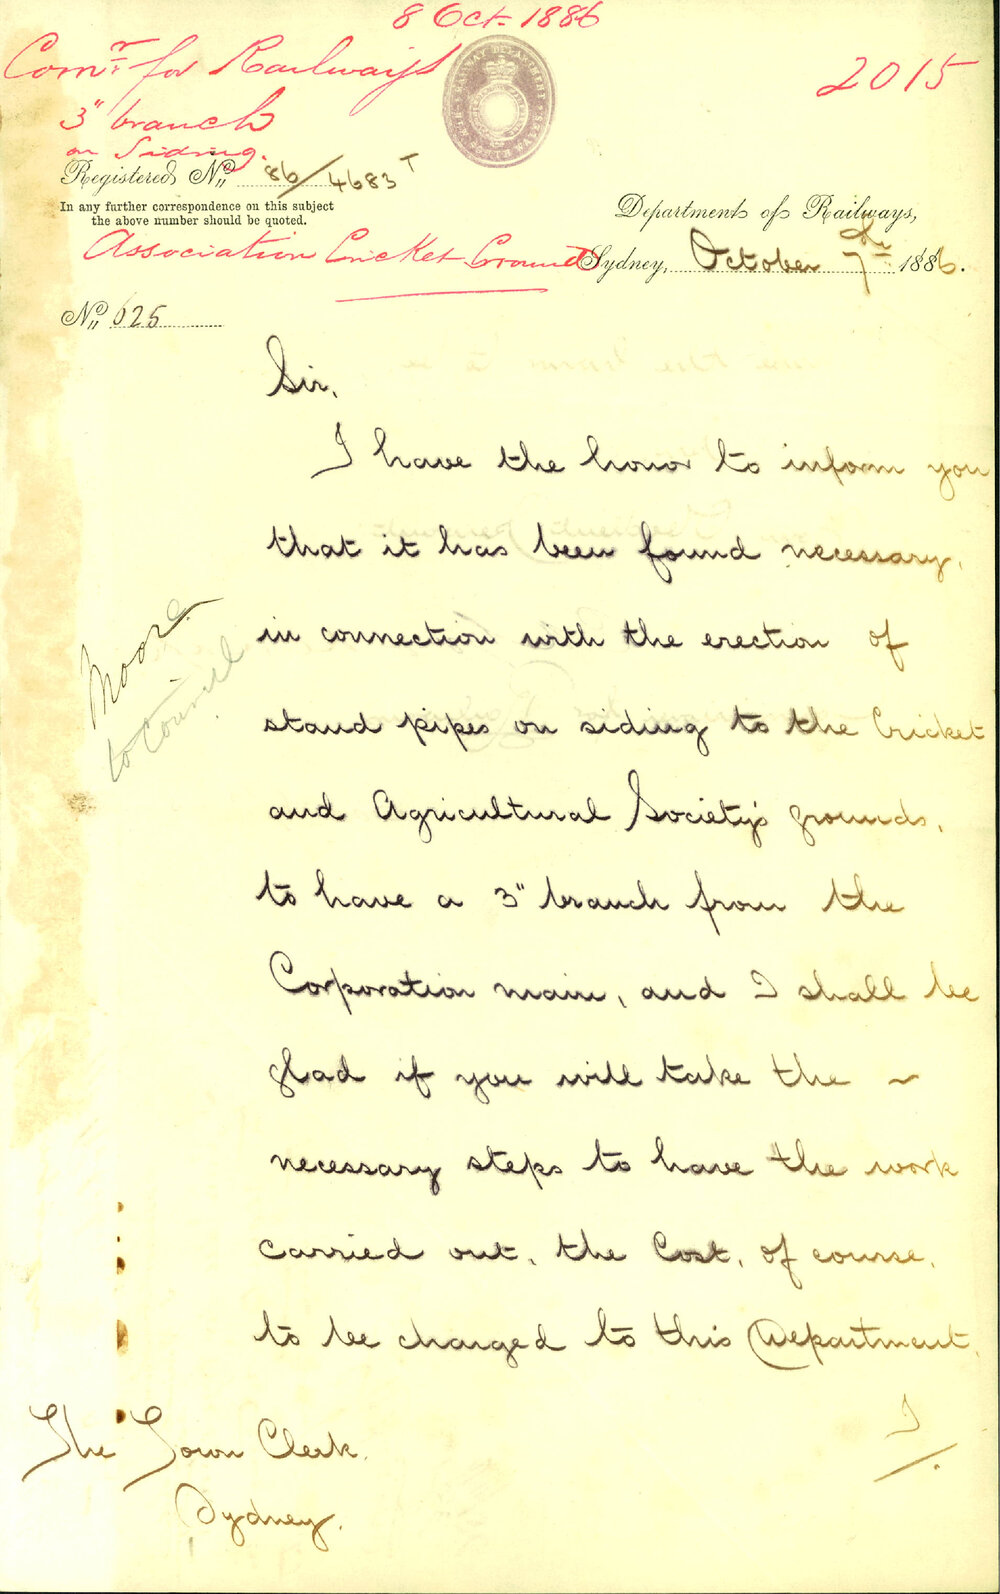 8 Oct. 1886
Comr. for Railways
2015
3" branch
on Siding.
Registered No. 86/4683 T
In any further correspondence on this subject
the above number should be quoted.
Department of Railways,
Association Cricket Ground
Sydney, October 7th 1886.
No. 625
Sir,
I have the honor to inform you
that it has been found necessary,
in connection with the erection of
stand pipes on siding to the Cricket
and Agricultural Society's grounds,
to have a 3" branch from the
Corporation main, and I shall be
glad if you will take the ~
necessary steps to have the work
carried out, the Cost, of course,
to be charged to this Department.
I/.
The Town Clerk,
Sydney.
Moore
to Council
RAILWAY DEPARTMENT
NEW SOUTH WALES